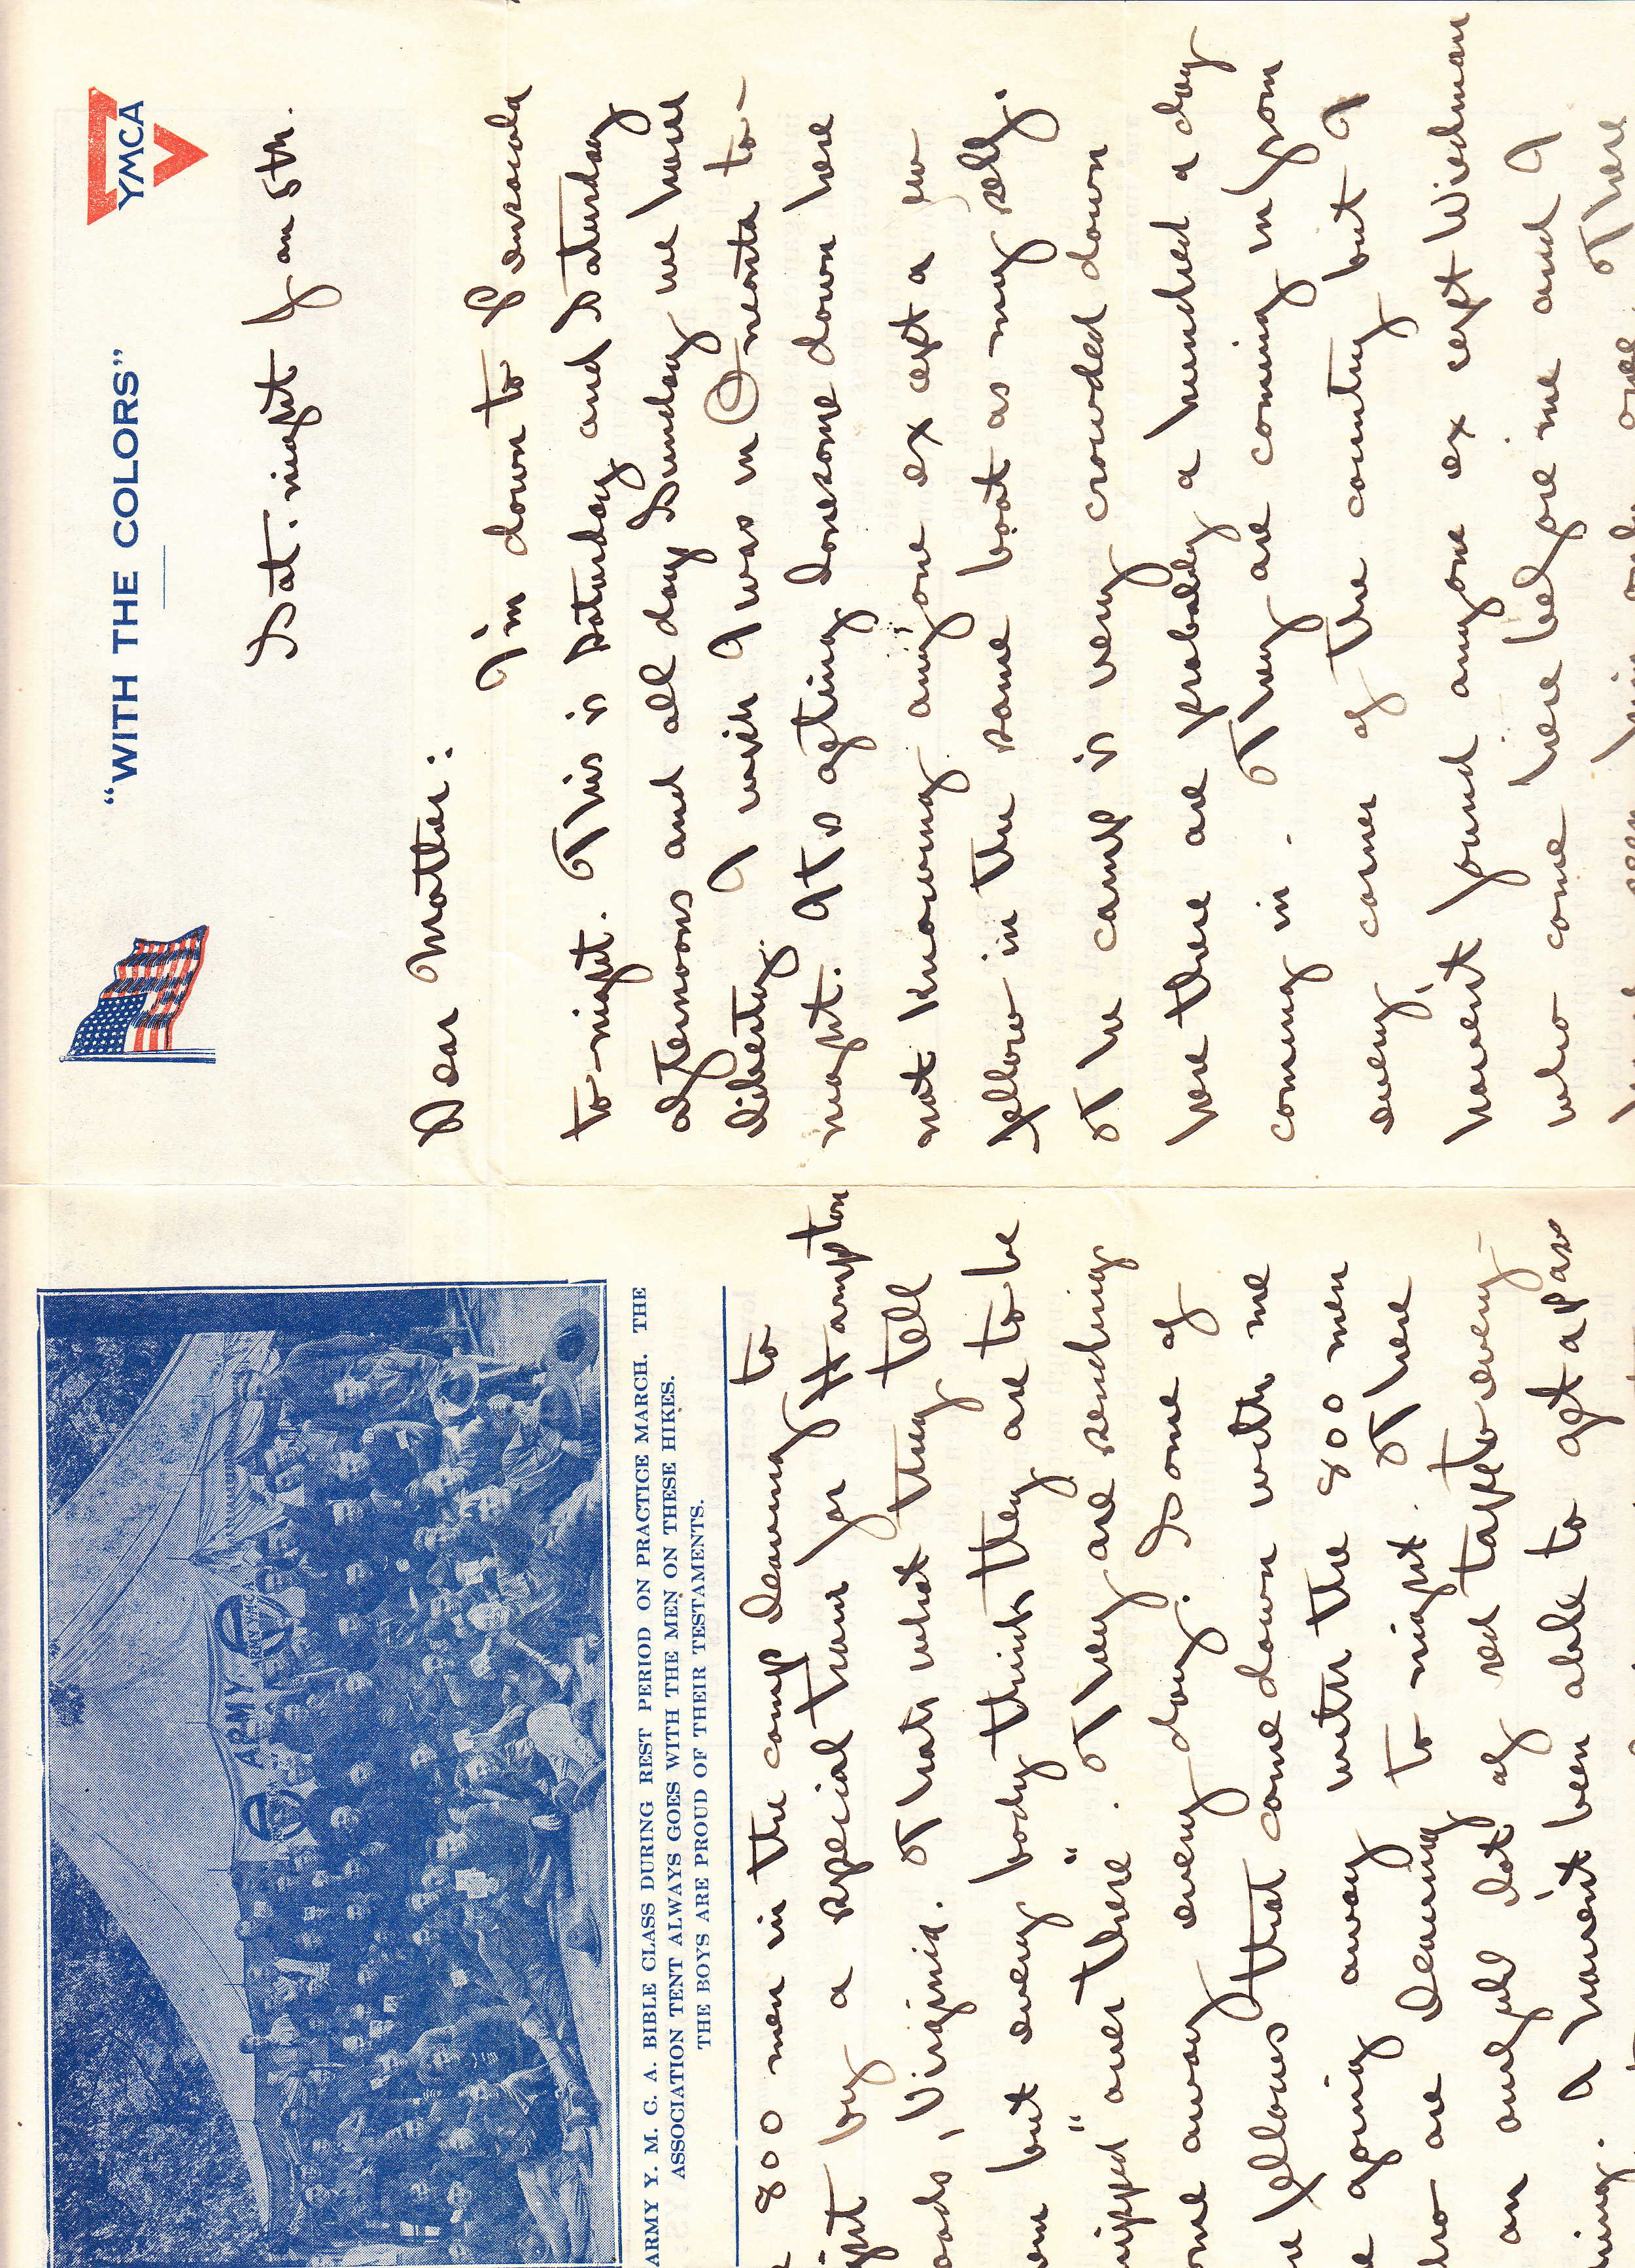 "WITH THE COLORS"
YMCA
Sat. night Jan 5th.
Dear Mother:
I'm down to Pensacola
to-night. This is Saturday and Saturday
afternoons and all day Sunday we have
liberty. I wish I was in Oneonta to-
night. It is getting lonesome down here
not knowing anyone except a few
fellow in the same boat as my self.
The camp is very crowded down
here there are probably a hundred a day
coming in. They are coming in from
every corner of the country but I
havent found anyone except Wiedman
who come here before me and I
seen him only once. There
ARMY Y. M. C. A. BIBLE CLASS DURING REST PERIOD ON PRACTICE MARCH. THE
ASSOCIATION TENT ALWAYS GOES WITH THE MEN ON THESE HIKES.
THE BOYS ARE PROUD OF THEIR TESTAMENTS.
ARMY
ARMY YMCA
800 men in the camp leaving to
ght by a special train for Hampton
oads, Virginia. Thats what they tell
em but every body thinks they are to be
hipped "over there". They are sending
ome away every day. Some of
he fellows that come down with me
e going away with the 800 men
ho are leaving to night. There
an awful lot of red tape to every-
hing. I havent been able to get a pass